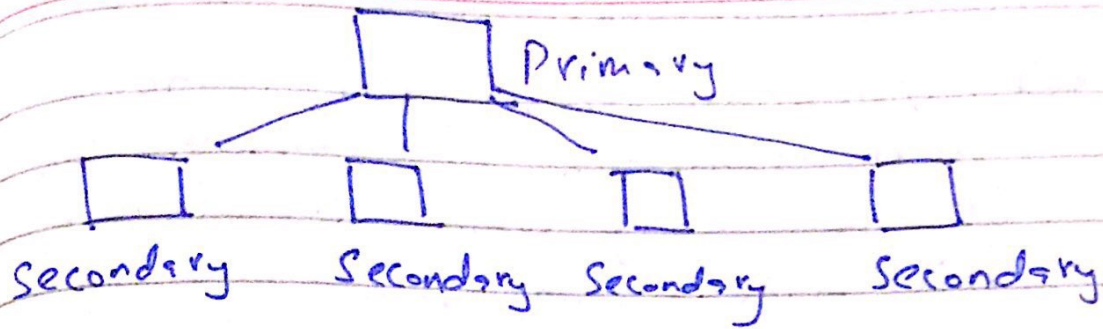 Primary
Secondary Secondary Secondary Secondary